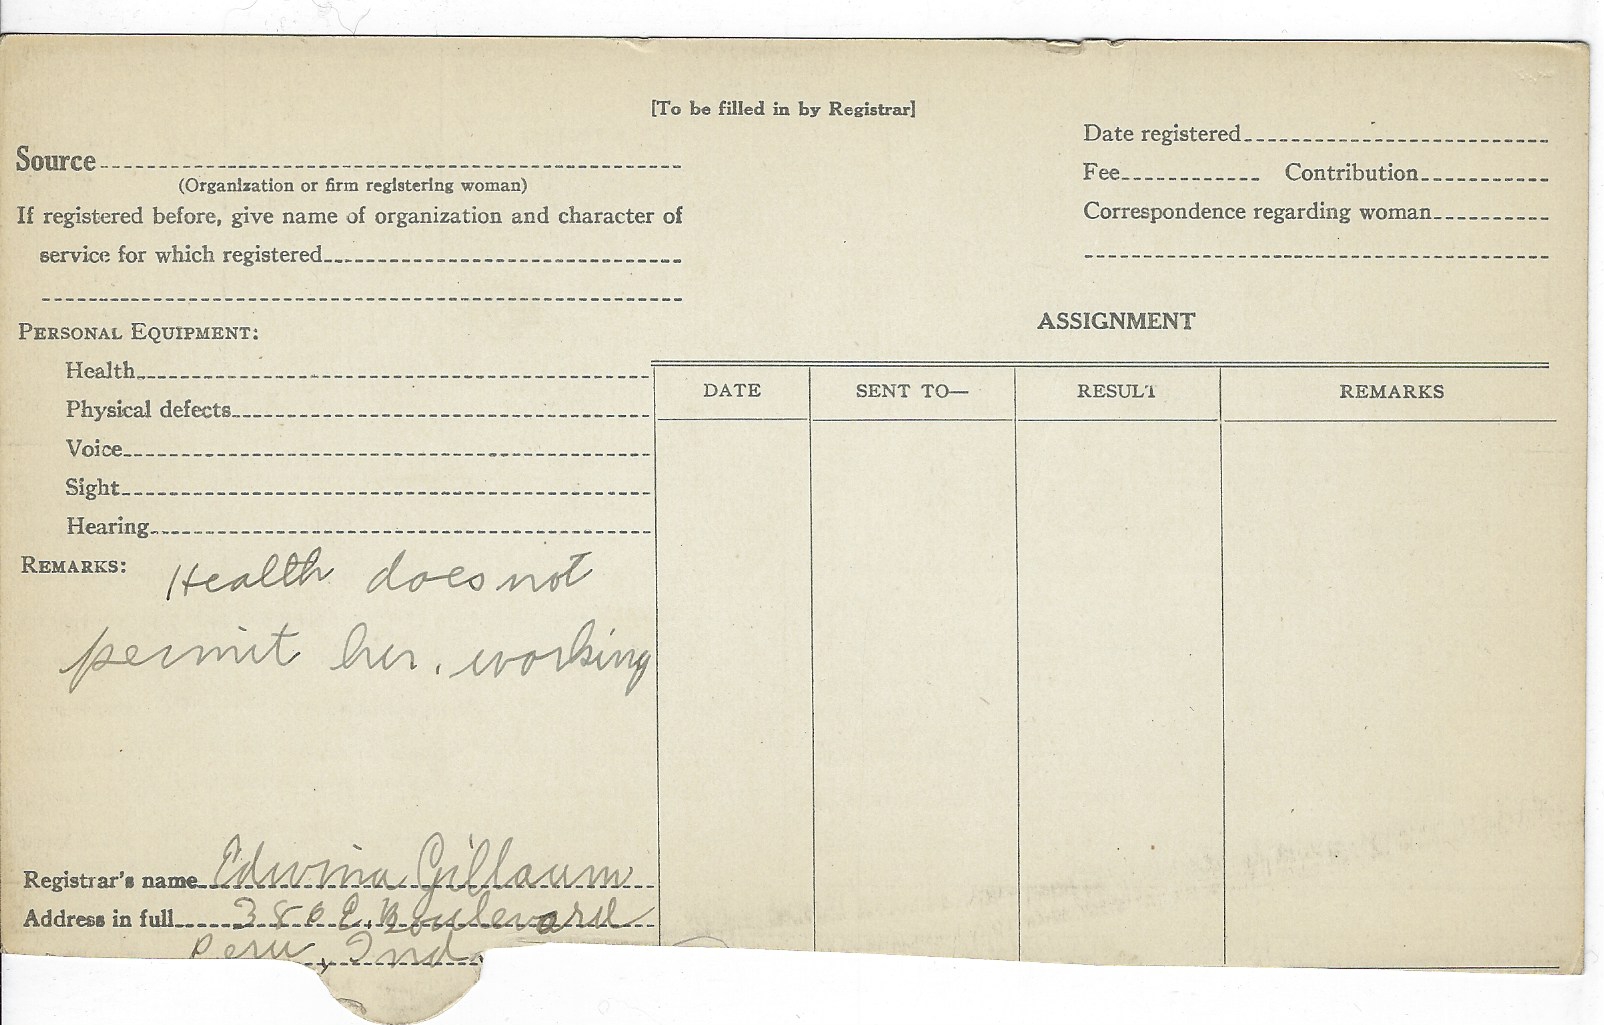 [To be filled in by Registrar]
Source
(Organization or firm registering woman)
If registered before, give name of organization and character of
service for which registered
Date registered
Fee Contribution
Correspondence regarding woman
PERSONAL EQUIPMENT:
Health
Physical defects
Voice
Sight
Hearing
REMARKS: Health does not
permit her. working
ASSIGNMENT
DATE SENT TO— RESULT REMARKS
Registrar's name Edwina Gillaum
Address in full 380 E. Boulevard
Peru, Ind.